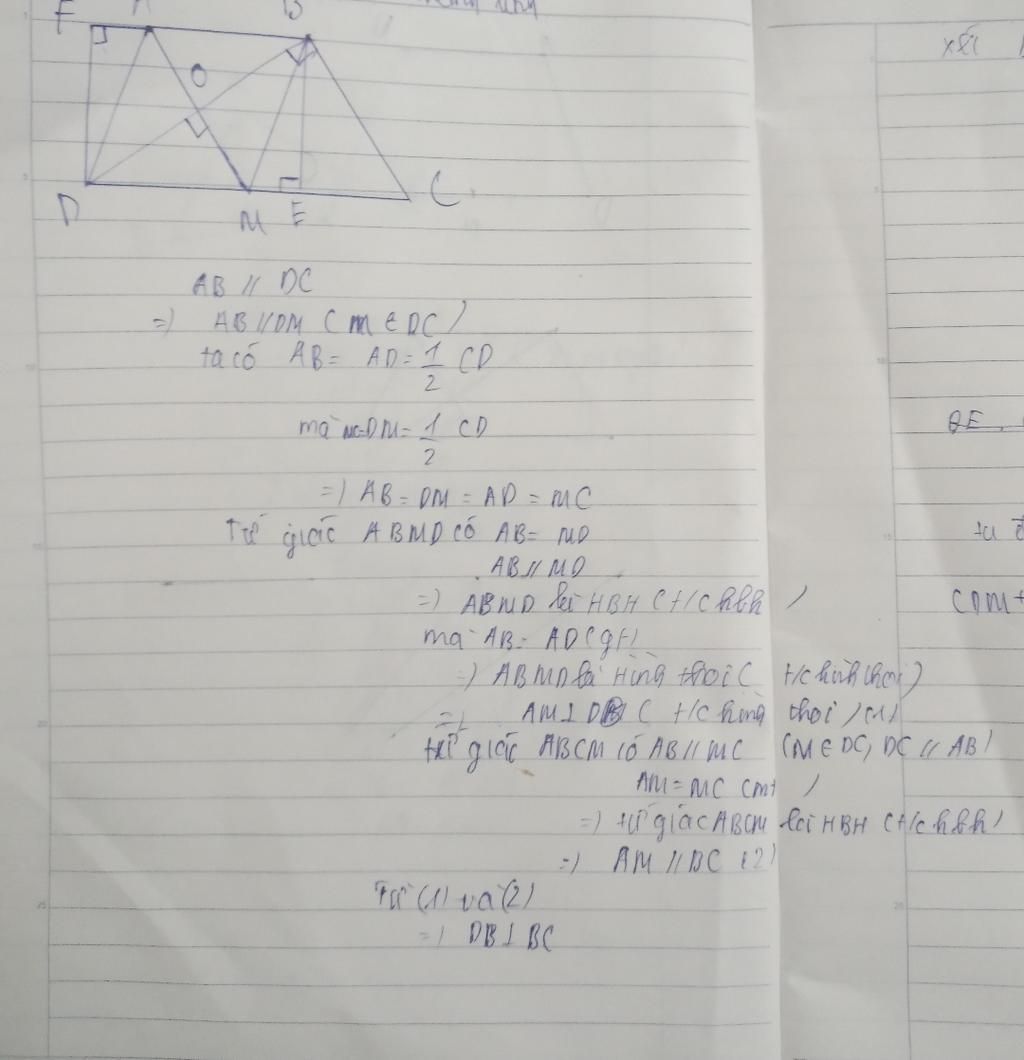 F
B
O
D
M
E
C
xét
AB // DC
=) AB//DM (M ∈ DC)
ta có AB = AD = 1/2 CD
mà MC=DM= 1/2 CD
=) AB = DM = AD = MC
Tứ giác ABMD có AB= MD
AB // MD
=) ABMD là HBH (t/c hbh)
mà AB= AD (gt)
=) ABMD là hình thoi ( t/c hình thoi)
=) AM⊥DB ( t/c hình thoi) (1)
tứ giác ABCM có AB//MC (M ∈ DC, DC // AB)
AM = MC cmt )
=) tứ giác ABCM là HBH (t/c hbh)
=) AM // BC (2)
Từ (1) và (2)
=) DB⊥BC